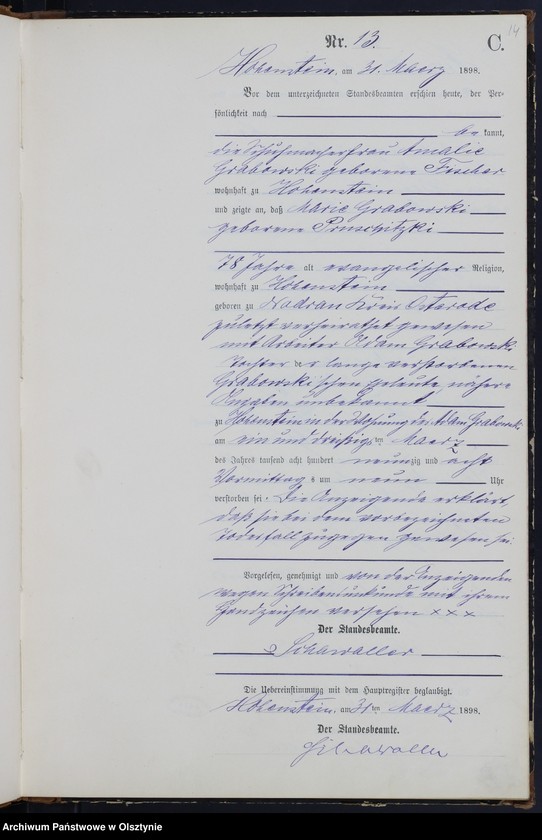 14
Nr. 13.
C.
Hohenstein, am 31. Maerz 1898.
Vor dem unterzeichneten Standesbeamten erschien heute, der Per-
sönlichkeit nach
be kannt,
die Schuhmacherfrau Amalie
Grabowski geborene Fischer
wohnhaft zu Hohenstein
und zeigte an, daß Marie Grabowski
geborene
78 Jahre alt evangelischer Religion,
wohnhaft zu Hohenstein
geboren zu Nadrau Kreis Osterode
zuletzt verheirathet gewesen
mit Arbeiter Adam Grabowski
Tochter der lange verstorbenen
Grabowski'schen Eheleute, nähere
Angaben unbekannt
zu Hohenstein in der Wohnung des Adam Grabowski
am ein und dreißigsten Maerz
des Jahres tausend acht hundert neunzig und acht
Vormittags um neun Uhr
verstorben sei. Die Anzeigende erklärt,
daß sie bei dem vorbezeichneten
Todesfall zugegen gewesen sei.
Vorgelesen, genehmigt und von der Anzeigenden
wegen Schreibensunkunde mit ihrem
Handzeichen versehen XXX
Der Standesbeamte.
Schawaller
Die Uebereinstimmung mit dem Hauptregister beglaubigt.
Hohenstein, am 31ten Maerz 1898.
Der Standesbeamte.
Schawaller
Archiwum Państwowe w Olsztynie